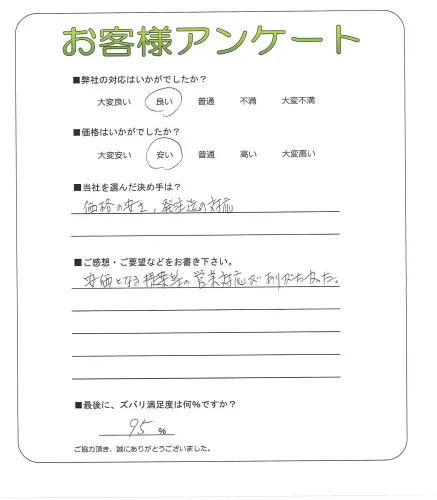 お客様アンケート
■弊社の対応はいかがでしたか？
大変良い 良い 普通 不満 大変不満
■価格はいかがでしたか？
大変安い 安い 普通 高い 大変高い
■当社を選んだ決め手は？
価格の安さ、発注迄の対応
■ご感想・ご要望などをお書き下さい。
安価となる提案等の営業対応がありがたかった。
■最後に、ズバリ満足度は何％ですか？
95 %
ご協力頂き、誠にありがとうございました。